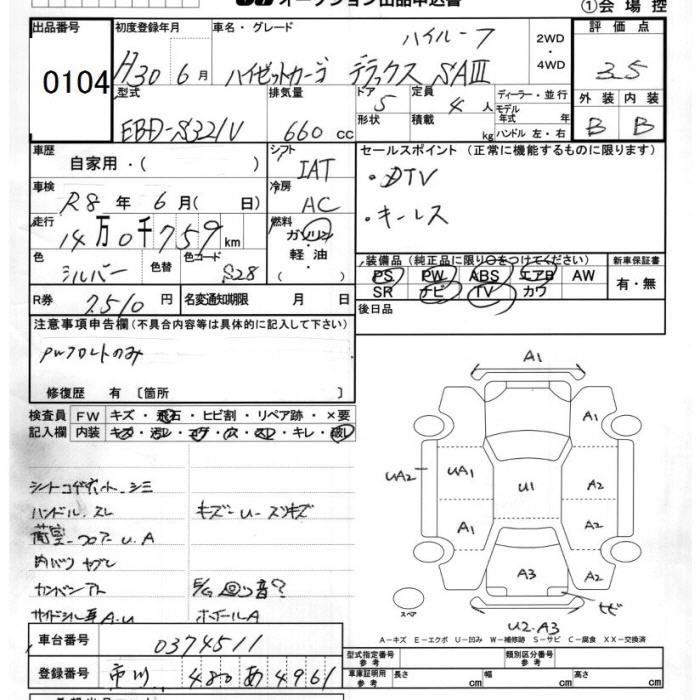 オークション出品申込書
①会場控
出品番号 0104
初度登録年月 H30 6月
車名・グレード ハイルーフ
ハイゼットカーゴ デラックス SAIII
2WD・4WD
評価点 3.5
外装 内装
B B
型式 EBD-S321V
排気量 660 cc
ドア 5
形状
定員 4人
積載 kg
ディーラー・並行
モデル年式 年
ハンドル 左・右
車歴 自家用・( )
シフト IAT
車検 R8年 6月( 日)
冷房 AC
走行 14万0千759km
燃料 ガソリン・軽油・( )
色 シルバー 色替
色コード S28
R券 7510円
名変通知期限 月 日
セールスポイント (正常に機能するものに限ります)
・DTV
・キーレス
装備品(純正品に限り○をつけてください)
PS PW ABS エアB AW
SR ナビ TV カワ
新車保証書
有・無
後日品
注意事項申告欄(不具合内容等は具体的に記入して下さい)
PWフロントのみ
修復歴 有〔箇所 〕
検査員記入欄
FW キズ・飛石・ヒビ割・リペア跡・×要
内装 キズ・汚レ・コゲ・穴・スレ・キレ・破レ
シートコゲ穴小、シミ
ハンドル、スレ
荷室、フロアー U.A
内バリ ヤブレ
カンバンアト
サイドシル耳A.U
キズ〜U〜スリキズ
E/G 音?
ホイールA
A1
A1
UA2
UA1
U1
A2
A1
A2
A3
A2
スペア
U2.A3
A-キズ E-エクボ U-凹み W-補修跡 S-サビ C-腐食 XX-交換済
車台番号 0374511
登録番号 市川 480 あ 4961
型式指定番号 参考
類別区分番号 参考
車庫証明用 参考
長さ cm
幅 cm
高さ cm